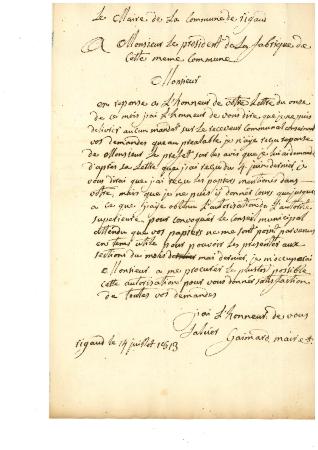 Le Maire de La Commune de rigaud
A Monsieur Le président de La fabrique de
Cette meme commune
Monsieur
en reponse a L'honneur de vôtre Lettre du onze
de ce mois j'ai L'honneur de vous dire que je ne puis
delivrer aucun mandat sur Le receveur Communal
vos demandes que au prealable je n'aye reçu reponse
de Monsieur Le prefet sur Les avis que je Lui ai demandé
d'après sa Lettre que j'ai reçu du 4 juin dernier, je
vous dirai que j'ai reçu Les papiers mentionés dans
vôtre, mais que je ne puis y donner cours que jusques
a ce que j'aye obtenu L'autorisation de L'autorité
superieure pour convoquer Le Conseil municipal
attendu que vos papiers ne me sont point parvenus
en tems utile pour pouvoir Les presenter aux
sections du mois de mai dernier, je m'occuperai
Monsieur a me procurer Le plustot possible
cette autorisation pour vous donner satisfaction
de toutes vos demandes
j'ai L'honneur de vous
saluer
rigaud le 14 juillet 1813 Gaimard maire